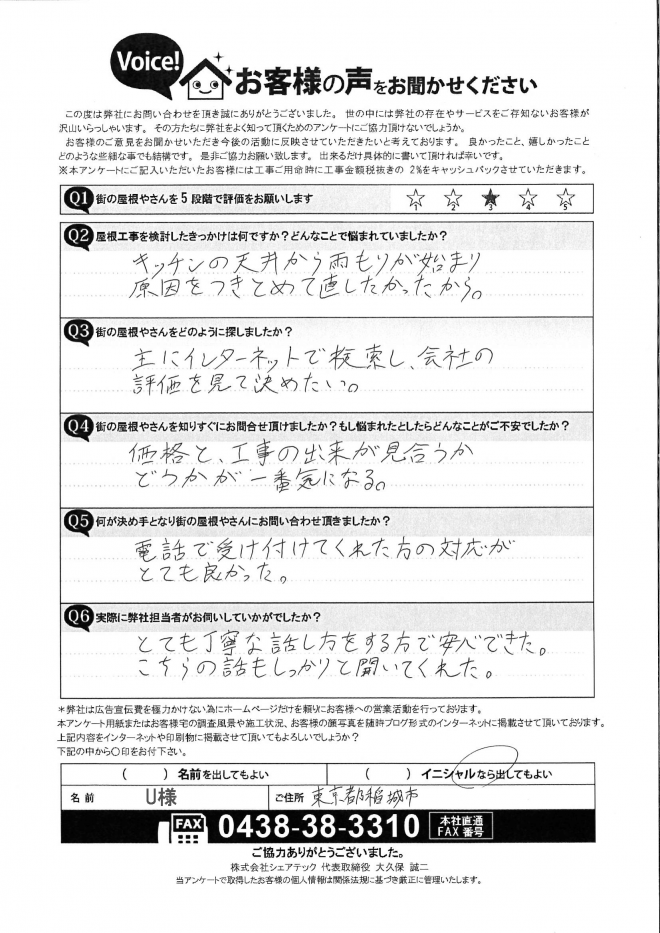 Voice!
お客様の声をお聞かせください
この度は弊社にお問い合わせを頂き誠にありがとうございました。 世の中には弊社の存在やサービスをご存知ないお客様が
沢山いらっしゃいます。 その方たちに弊社をよく知って頂くためのアンケートにご協力頂けないでしょうか。
お客様のご意見をお聞かせいただき今後の活動に反映させていただきたいと考えております。 良かったこと、嬉しかったこと
どのような些細な事でも結構です。 是非ご協力お願い致します。 出来るだけ具体的に書いて頂ければ幸いです。
※本アンケートにご記入いただいたお客様には工事ご用命時に工事金額税抜きの 2%をキャッシュバックさせていただきます。
Q1 街の屋根やさんを5段階で評価をお願いします
1 2 3 4 5
Q2 屋根工事を検討したきっかけは何ですか?どんなことで悩まれていましたか?
キッチンの天井から雨もりが始まり
原因をつきとめて直したかったから。
Q3 街の屋根やさんをどのように探しましたか?
主にインターネットで検索し、会社の
評価を見て決めたい。
Q4 街の屋根やさんを知りすぐにお問合せ頂けましたか?もし悩まれたとしたらどんなことがご不安でしたか?
価格と、工事の出来が見合うか
どうかが一番気になる。
Q5 何が決め手となり街の屋根やさんにお問い合わせ頂きましたか?
電話で受け付けてくれた方の対応が
とても良かった。
Q6 実際に弊社担当者がお伺いしていかがでしたか?
とても丁寧な話し方をする方で安心できた。
こちらの話もしっかりと聞いてくれた。
*弊社は広告宣伝費を極力かけない為にホームページだけを頼りにお客様への営業活動を行っております。
本アンケート用紙またはお客様宅の調査風景や施工状況、お客様の顔写真を随時ブログ形式のインターネットに掲載させて頂いております。
上記内容をインターネットや印刷物に掲載させて頂いてもよろしいでしょうか?
下記の中から○印をお付下さい。
( ) 名前を出してもよい ( ) イニシャルなら出してもよい
名前 U様 ご住所 東京都稲城市
FAX 0438-38-3310 本社直通 FAX番号
ご協力ありがとうございました。
株式会社シェアテック 代表取締役 大久保 誠二
当アンケートで取得したお客様の個人情報は関係法規に基づき厳正に管理いたします。